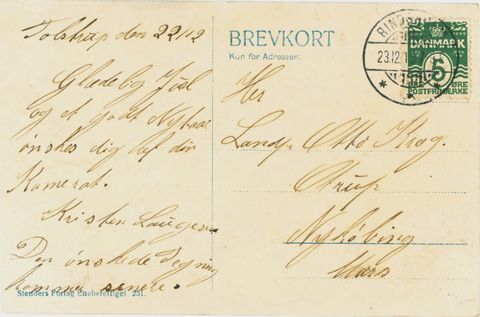 Tolstrup den 22/12
Glædelig Jul
og et godt Nytaar
ønskes dig af din
Kamerat.
Kristen Laugesen
Den ønskede Tegning
kommer senere.
Stenders Forlag Eneberettiget 231.
BREVKORT
Kun for Adressen:
Hr
Landp. Otto Krog.
Otrup
Nykøbing
Mors
23.12.1
DANMARK
5
ØRE ØRE
POSTFRIMÆRKE